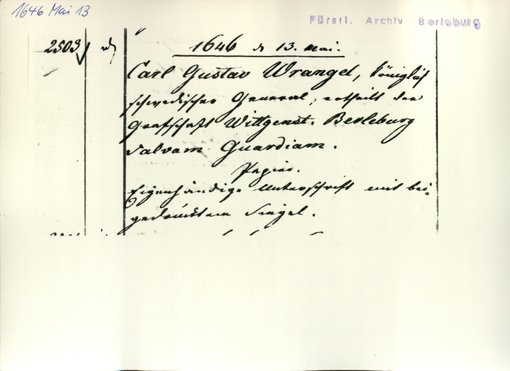 1646 Mai 13
Fürstl. Archiv Berleburg
2503
1646 d 13. Mai.
Carl Gustav Wrangel, königlich
schwedischer General, ertheilt der
Grafschaft Wittgenst. Berleburg
Salvam Guardiam.
Papier.
Eigenhändige Unterschrift mit bei-
gedrücktem Siegel.